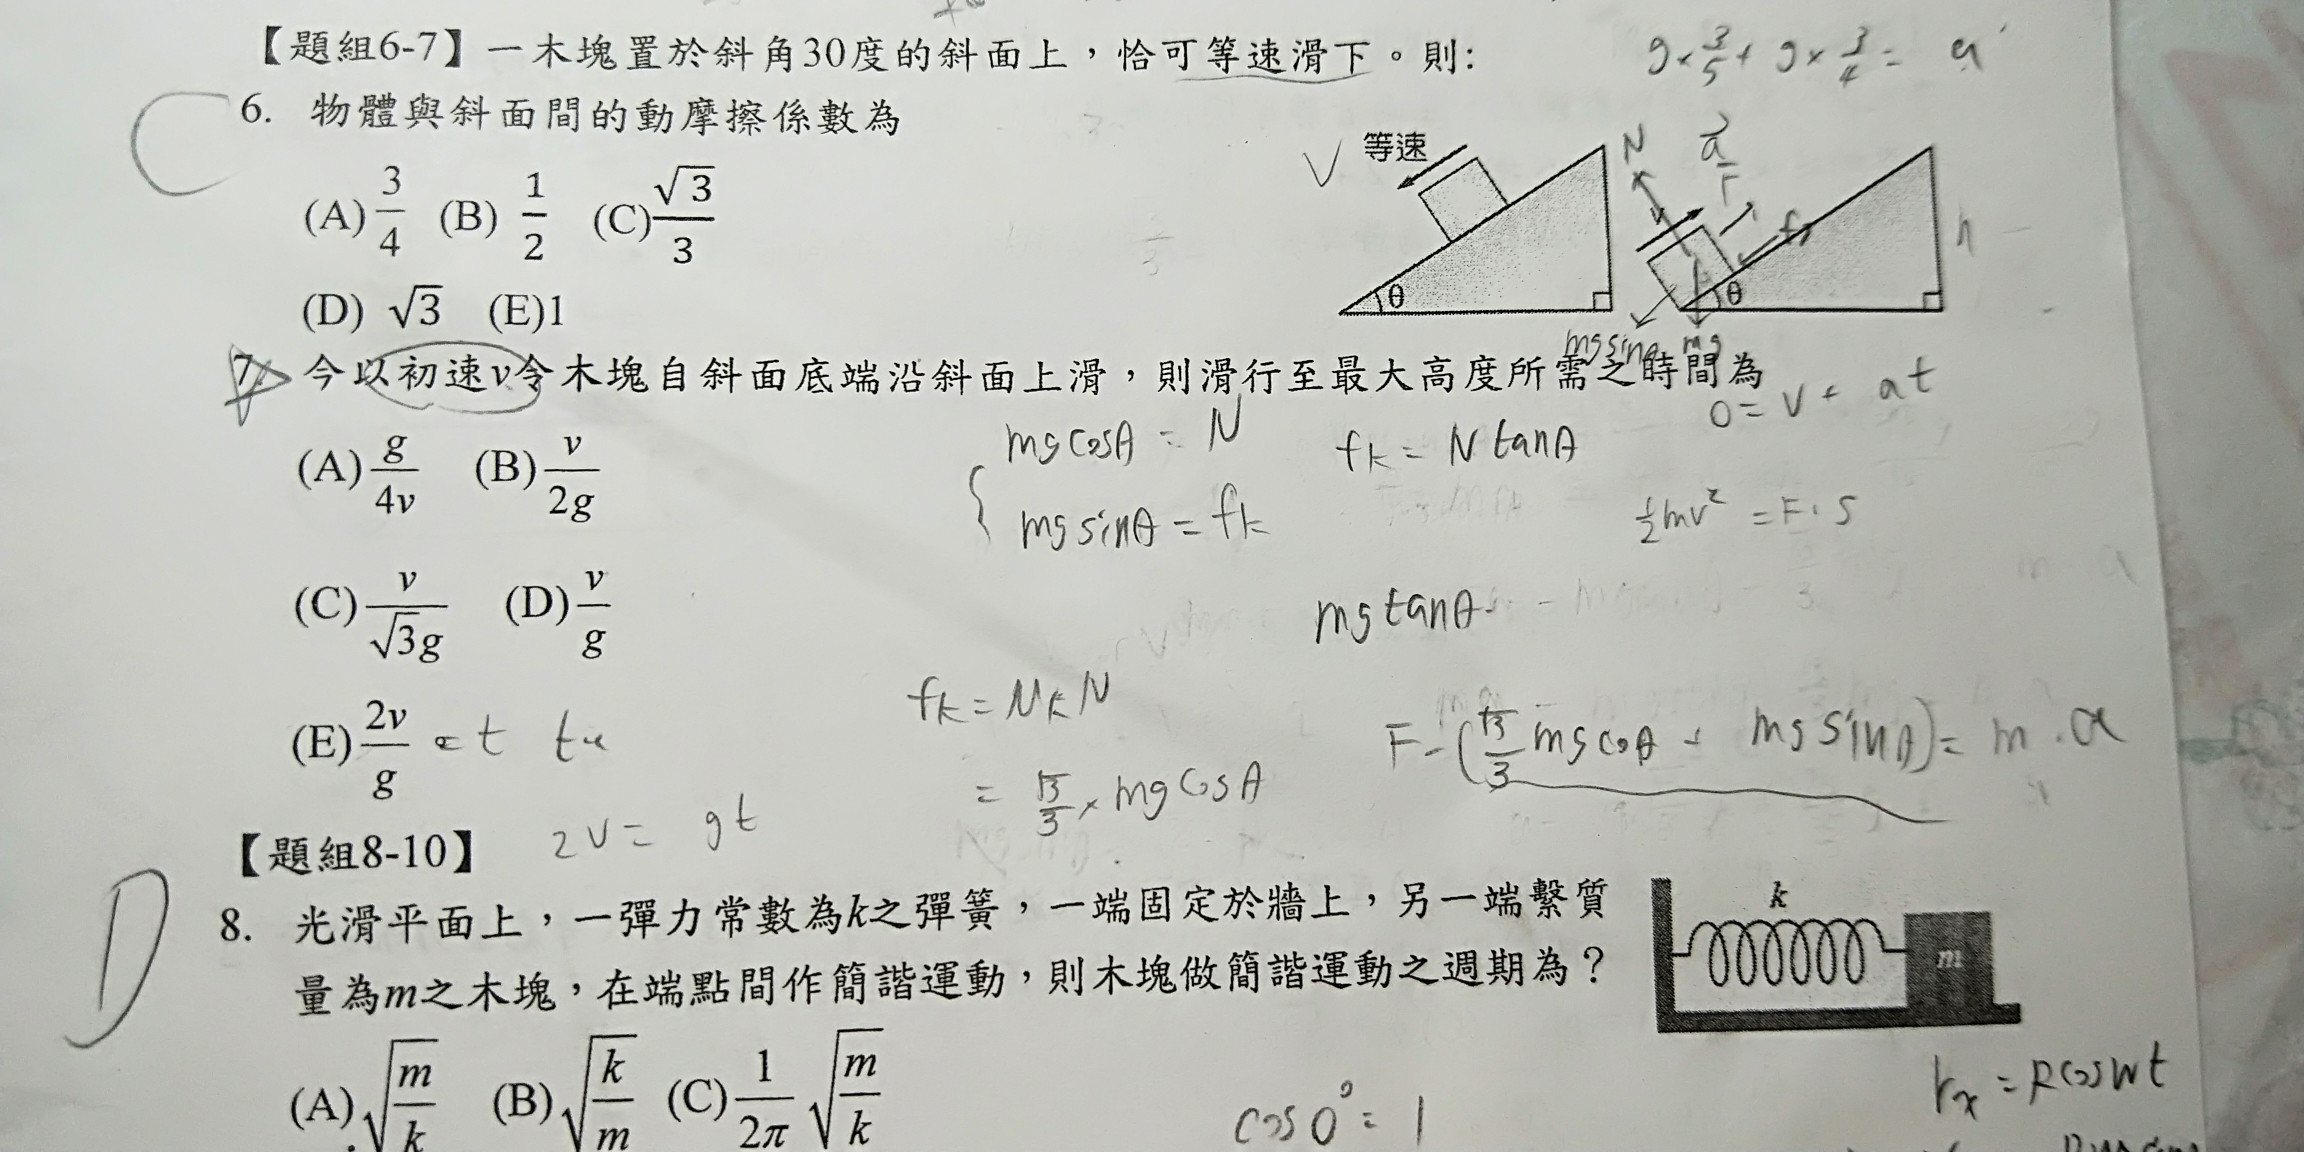 【題組6-7】一木塊置於斜角30度的斜面上，恰可等速滑下。則:
g×3/5+ g×3/4= a
6. 物體與斜面間的動摩擦係數為
(A) 3/4 (B) 1/2 (C) √3/3
(D) √3 (E)1
V 等速
θ
N
f
θ
h
mgsinθ mg
7. 今以初速v令木塊自斜面底端沿斜面上滑，則滑行至最大高度所需之時間為
0= V+ at
(A) g/4v (B) v/2g
mgcosθ = N
fk = N tanθ
mgsinθ = fk
½mv² = F·S
(C) v/√3g (D) v/g
mgtanθ
fk = μkN
(E) 2v/g = t
F-(√3/3 mgcosθ + mgsinθ)= m·a
= √3/3 × mgcosθ
2v= gt
【題組8-10】
D
8. 光滑平面上，一彈力常數為k之彈簧，一端固定於牆上，另一端繫質
量為m之木塊，在端點間作簡諧運動，則木塊做簡諧運動之週期為？
k
m
(A) √m/k (B) √k/m (C) 1/2π √m/k
cos0°= 1
rx = Rcoswt